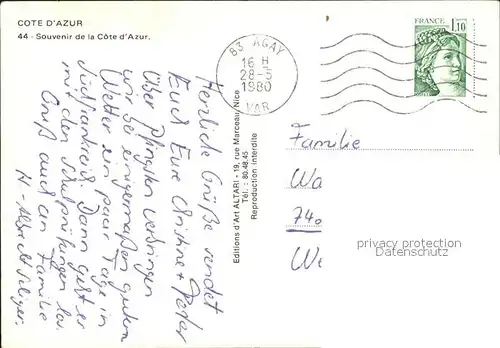 COTE D'AZUR
44 - Souvenir de la Côte d'Azur.
83 AGAY
16 H
28-5
1980
VAR
FRANCE
1,10
Herzliche Grüße sendet
Euch Eure Christine + Peter
Über Pfingsten verbringen
wir bei einigermaßen gutem
Wetter ein paar Tage in
Südfrankreich. Dann geht es
mit den Schulprüfungen los.
Gruß auch an Familie
H. Albrecht
Editions d'Art ALTARI - 19, rue Marceau, Nice
Tél. : 80.48.45
Reproduction interdite
Familie
Wa
740
We
privacy protection
Datenschutz